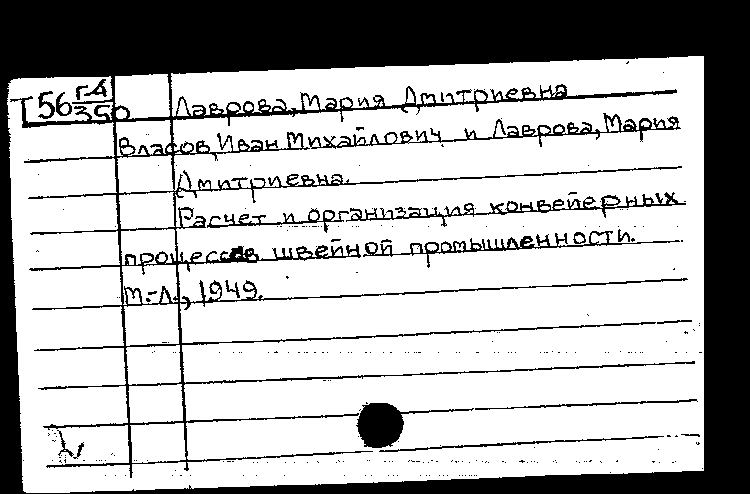 Г56 Г-4/350 Лаврова, Мария Дмитриевна
Власов, Иван Михайлович и Лаврова, Мария
Дмитриевна.
Расчет и организация конвейерных
процессов швейной промышленности.
М.-Л., 1949.